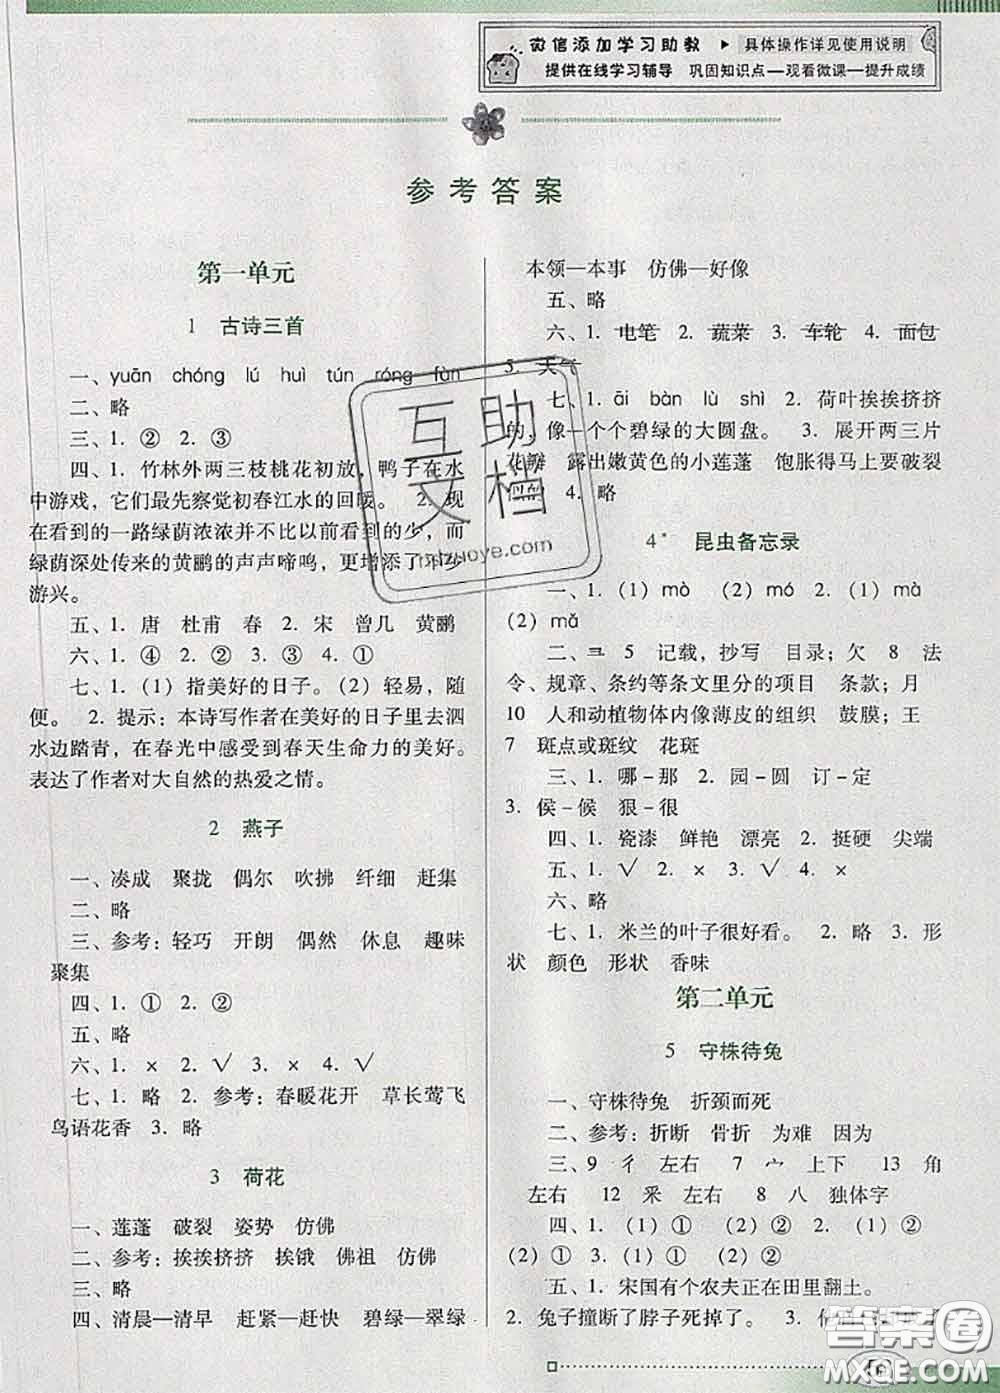 微信添加学习助教 ▶ 具体操作详见使用说明
提供在线学习辅导 巩固知识点—观看微课—提升成绩
参考答案
第一单元
1 古诗三首
一、yuān chóng lú huì tún róng fùn
二、略
三、1. ② 2. ③
四、1. 竹林外两三枝桃花初放，鸭子在水
中游戏，它们最先察觉初春江水的回暖。 2. 现
在看到的一路绿荫浓浓并不比以前看到的少，而
绿荫深处传来的黄鹂的声声啼鸣，更增添了不少
游兴。
五、1. 唐 杜甫 春 2. 宋 曾几 黄鹂
六、1. ④ 2. ② 3. ③ 4. ①
七、1. (1) 指美好的日子。(2) 轻易，随
便。 2. 提示：本诗写作者在美好的日子里去泗
水边踏青，在春光中感受到春天生命力的美好。
表达了作者对大自然的热爱之情。
2 燕子
一、凑成 聚拢 偶尔 吹拂 纤细 赶集
二、略
三、参考：轻巧 开朗 偶然 休息 趣味
聚集
四、1. ① 2. ②
五、略
六、1. × 2. √ 3. × 4. √
七、1. 略 2. 参考：春暖花开 草长莺飞
鸟语花香 3. 略
3 荷花
一、莲蓬 破裂 姿势 仿佛
二、参考：挨挨挤挤 挨饿 佛祖 仿佛
三、略
四、清晨—清早 赶紧—赶快 碧绿—翠绿
本领—本事 仿佛—好像
五、略
六、1. 电笔 2. 蔬菜 3. 车轮 4. 面包
5. 天气
七、1. āi bàn lù shì 2. 荷叶挨挨挤挤
的，像一个个碧绿的大圆盘。 3. 展开两三片
花瓣 露出嫩黄色的小莲蓬 饱胀得马上要破裂
似的 4. 略
4* 昆虫备忘录
一、1. (1) mò (2) mó 2. (1) mà
(2) mǎ
二、彐 5 记载，抄写 目录；欠 8 法
令、规章、条约等条文里分的项目 条款；月
10 人和动植物体内像薄皮的组织 鼓膜；王
7 斑点或斑纹 花斑
三、1. 哪－那 2. 园－圆 订－定
3. 侯－候 狠－很
四、1. 瓷漆 鲜艳 漂亮 2. 挺硬 尖端
五、1. √ 2. × 3. √ 4. ×
六、略
七、1. 米兰的叶子很好看。 2. 略 3. 形
状 颜色 形状 香味
第二单元
5 守株待兔
一、守株待兔 折颈而死
二、参考：折断 骨折 为难 因为
三、9 彳 左右 7 宀 上下 13 角
左右 12 釆 左右 8 八 独体字
四、1. (1) ① (2) ② 2. (1) ②
(2) ① 3. (1) ② (2) ①
五、1. 宋国有个农夫正在田里翻土。
2. 兔子撞断了脖子死掉了。 3.
互助
文档
hzhuoye.com
答案圈